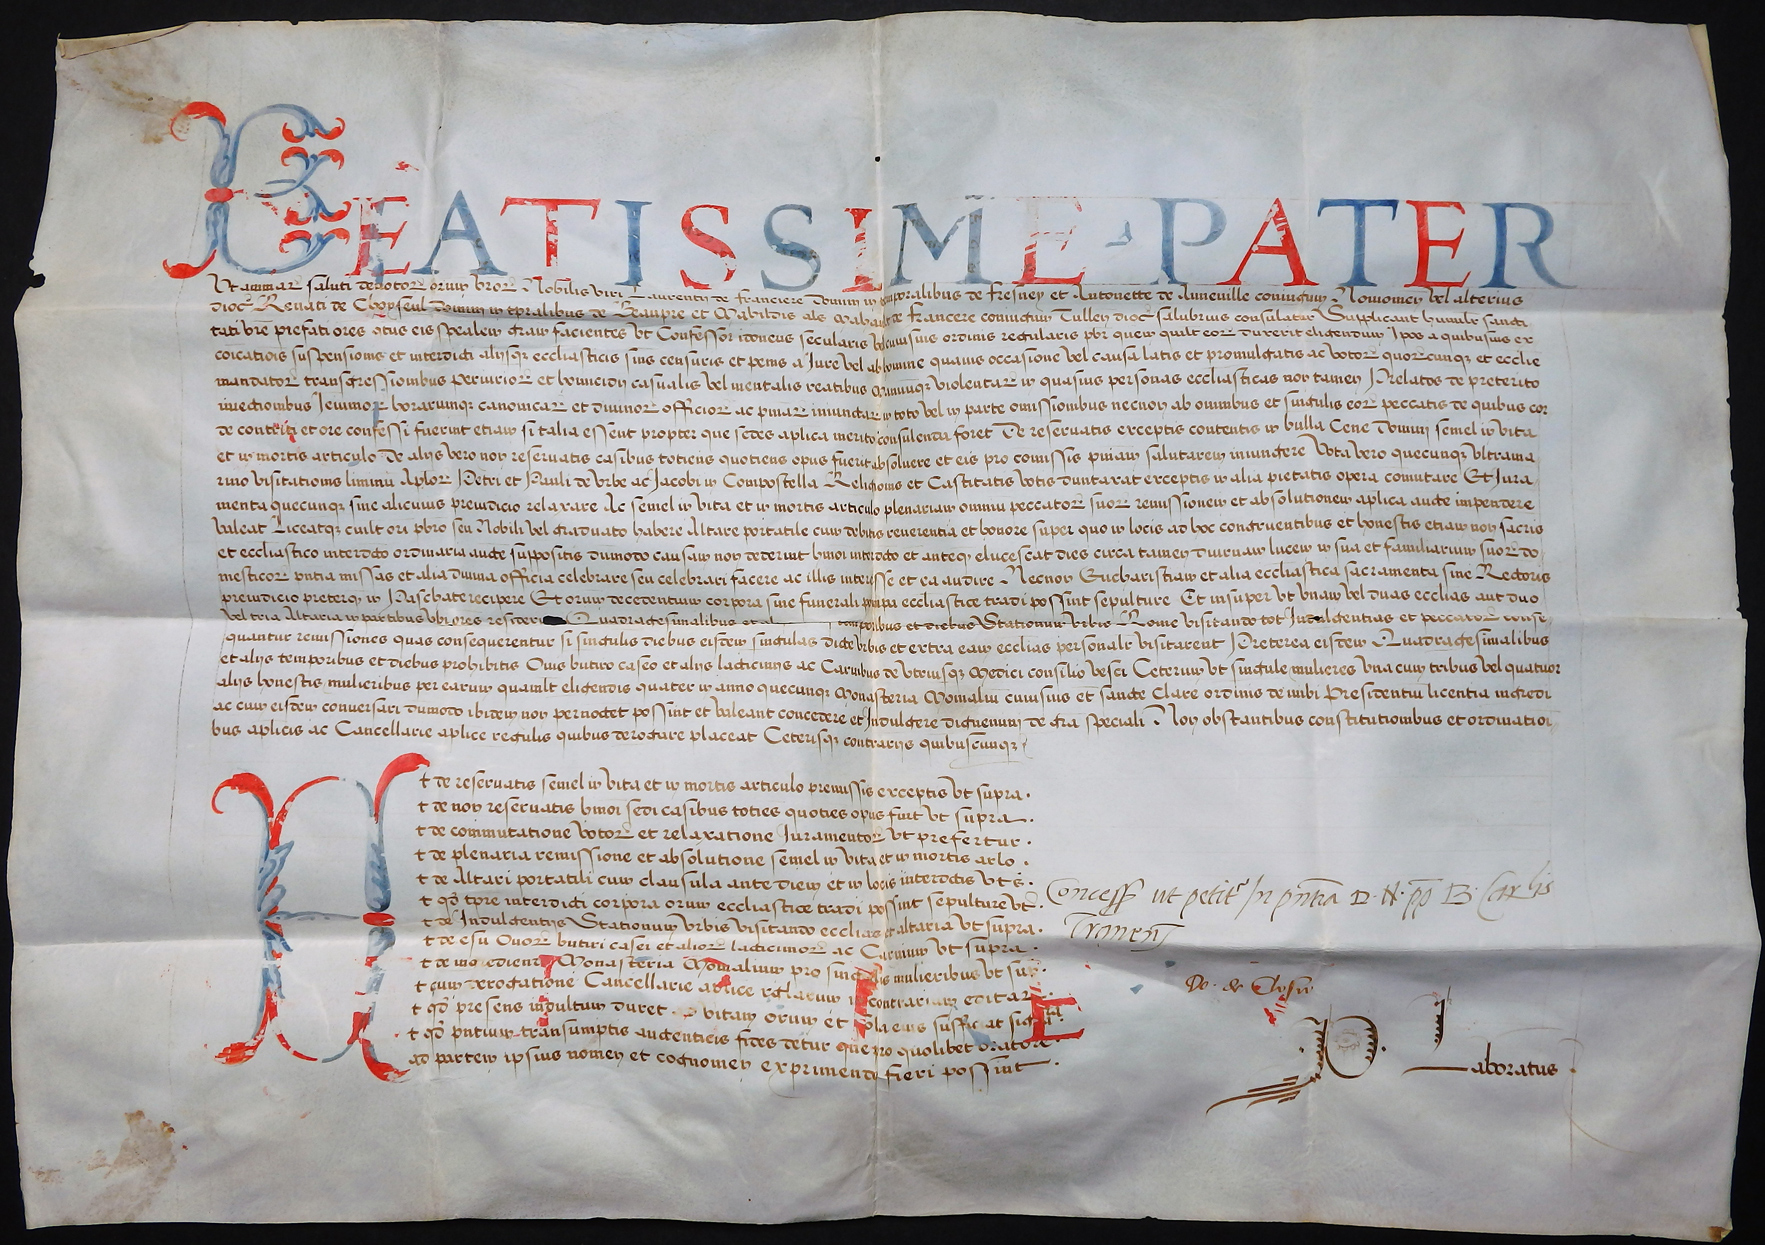 BEATISSIME PATER
Ut animar saluti devotor orum vror Nobilis viri Laurentii de franciere Domini in temporalibus de fresney et Antonette de Anneville coniugum Noviomen vel alterius
dioc Renati de Choyseul Domini in tpralibus de Beaupre et Mabildis als Mahault de francere coniugum Tullen dioc salubrius consulatur Supplicant humilr sancti
tati vre prefati ores qtus eis spealem gram facientes ut Confessor idoneus secularis vel cuiusuis ordinis regularis pbr quem qualt eor duxerit eligendum Ipos a quibusuis ex
coicatiois suspensionis et interdicti aliisqz eccliasticis sniis censuris et penis a Jure vel ab homine quauis occasione vel causa latis et promulgatis ac votor quorcunqz et ecclie
mandator transgressionibus periurior et homicidii casualis vel mentalis reatibus manuuqz violentar in quasuis personas eccliasticas non tamen Prelatos de preterito
iniectionibus Jeiunior horarumqz canonicar et diuinor officior ac pniar iniunctar in toto vel in parte omissionibus necnon ab omnibus et singulis eor peccatis de quibus cor
de contriti et ore confessi fuerint etiam si talia essent propter que sedes aplica merito consulenda foret De reseruatis exceptis contentis in bulla Cene Domini semel in vita
et in mortis articulo De aliis vero non reseruatis casibus totiens quotiens opus fuerit absoluere et eis pro comissis pniam salutarem iniungere Vota vero quecunqz vltrama
rino visitationis liminu Aplor Petri et Pauli de Urbe ac Jacobi in Compostella Religionis et Castitatis votis duntaxat exceptis in alia pietatis opera comutare Et Jura
menta quecunqz sine alicuius preiudicio relaxare Ac semel in vita et in mortis articulo plenariam omniu peccator suor remissionem et absolutionem aplica aucte impendere
valeat Liceatqz cuilt ori pbro seu Nobili vel graduato habere Altare portatile cum debitis reuerentia et honore super quo in locis ad hoc congruentibus et honestis etiam non sacris
et eccliastico interdcto ordinaria aucte suppositis dumodo causam non dederint hmoi interdcto et anteqz elucescat dies circa tamen diurnam lucem in sua et familiarium suor do
mesticor pntia missas et alia diuina officia celebrare seu celebrari facere ac illis interesse et ea audire Necnon Eucharistiam et alia eccliastica sacramenta sine Rectoris
preiudicio preterqz in Paschate recipere Et orum decedentium corpora sine funerali pompa eccliastice tradi possint sepulture Et insuper ut vnam vel duas ecclias aut duo
vel tria Altaria in partibus vbi ores resideri Quadragesimalibus et al temporibus et diebus Stationum Urbis Rome visitando tot Indulgentias et peccator conse
quantur remissiones quas consequerentur si singulis diebus eisdem singulas dicte Urbis et extra eam ecclias personalr visitarent Preterea eisdem Quadragesimalibus
et aliis temporibus et diebus prohibitis Ouis butiro caseo et aliis lacticiniis ac Carnibus de vtriusqz Medici consilio vesci Ceterum ut singule mulieres vna cum tribus vel quatuor
aliis honestis mulieribus per earum quamlt eligendis quater in anno quecunqz Monasteria Monialiu cuiusuis et sancte Clare ordinis de inibi Presidentiu licentia ingredi
ac cum eisdem conuersari dumodo ibidem non pernoctet possint et valeant concedere et Indulgere dignemini de gra speciali Non obstantibus constitutionibus et ordinatioi
bus aplicis ac Cancellarie aplice regulis quibus derogare placeat Ceterisqz contrariis quibuscunqz
Et de reseruatis semel in vita et in mortis articulo premissis exceptis ut supra .
Et de non reseruatis hmoi sedi casibus toties quoties opus fuit ut supra .
Et de commutatione votor et relaxatione Juramentor ut prefertur .
Et de plenaria remissione et absolutione semel in vita et in mortis arlo .
Et de Altari portatili cum clausula ante diem et in locis interdctis ut s .
Et qd tpre interdicti corpora orum eccliastice tradi possint sepulture ut
Et de Indulgentiis Stationum Urbis visitando ecclias et altaria ut supra .
Et de esu Ouor butiri casei et alior lacticinior ac Carnium ut supra .
Et de ingrediend Monasteria Monialium pro singulis mulieribus ut sup .
Et cum derogatione Cancellarie aplice reglarum in contrarium editar
Et qd presens indultum duret vitam orum et sola eius sufficiat sig
Et qd pntium transumptis auctenticis fides detur que pro quolibet oratore
ad partem ipsius nomen et cognomen exprimendo fieri possint
Concess ut petitr In pntia D. N. pp B. Carlis
Tranen
B Laboratus